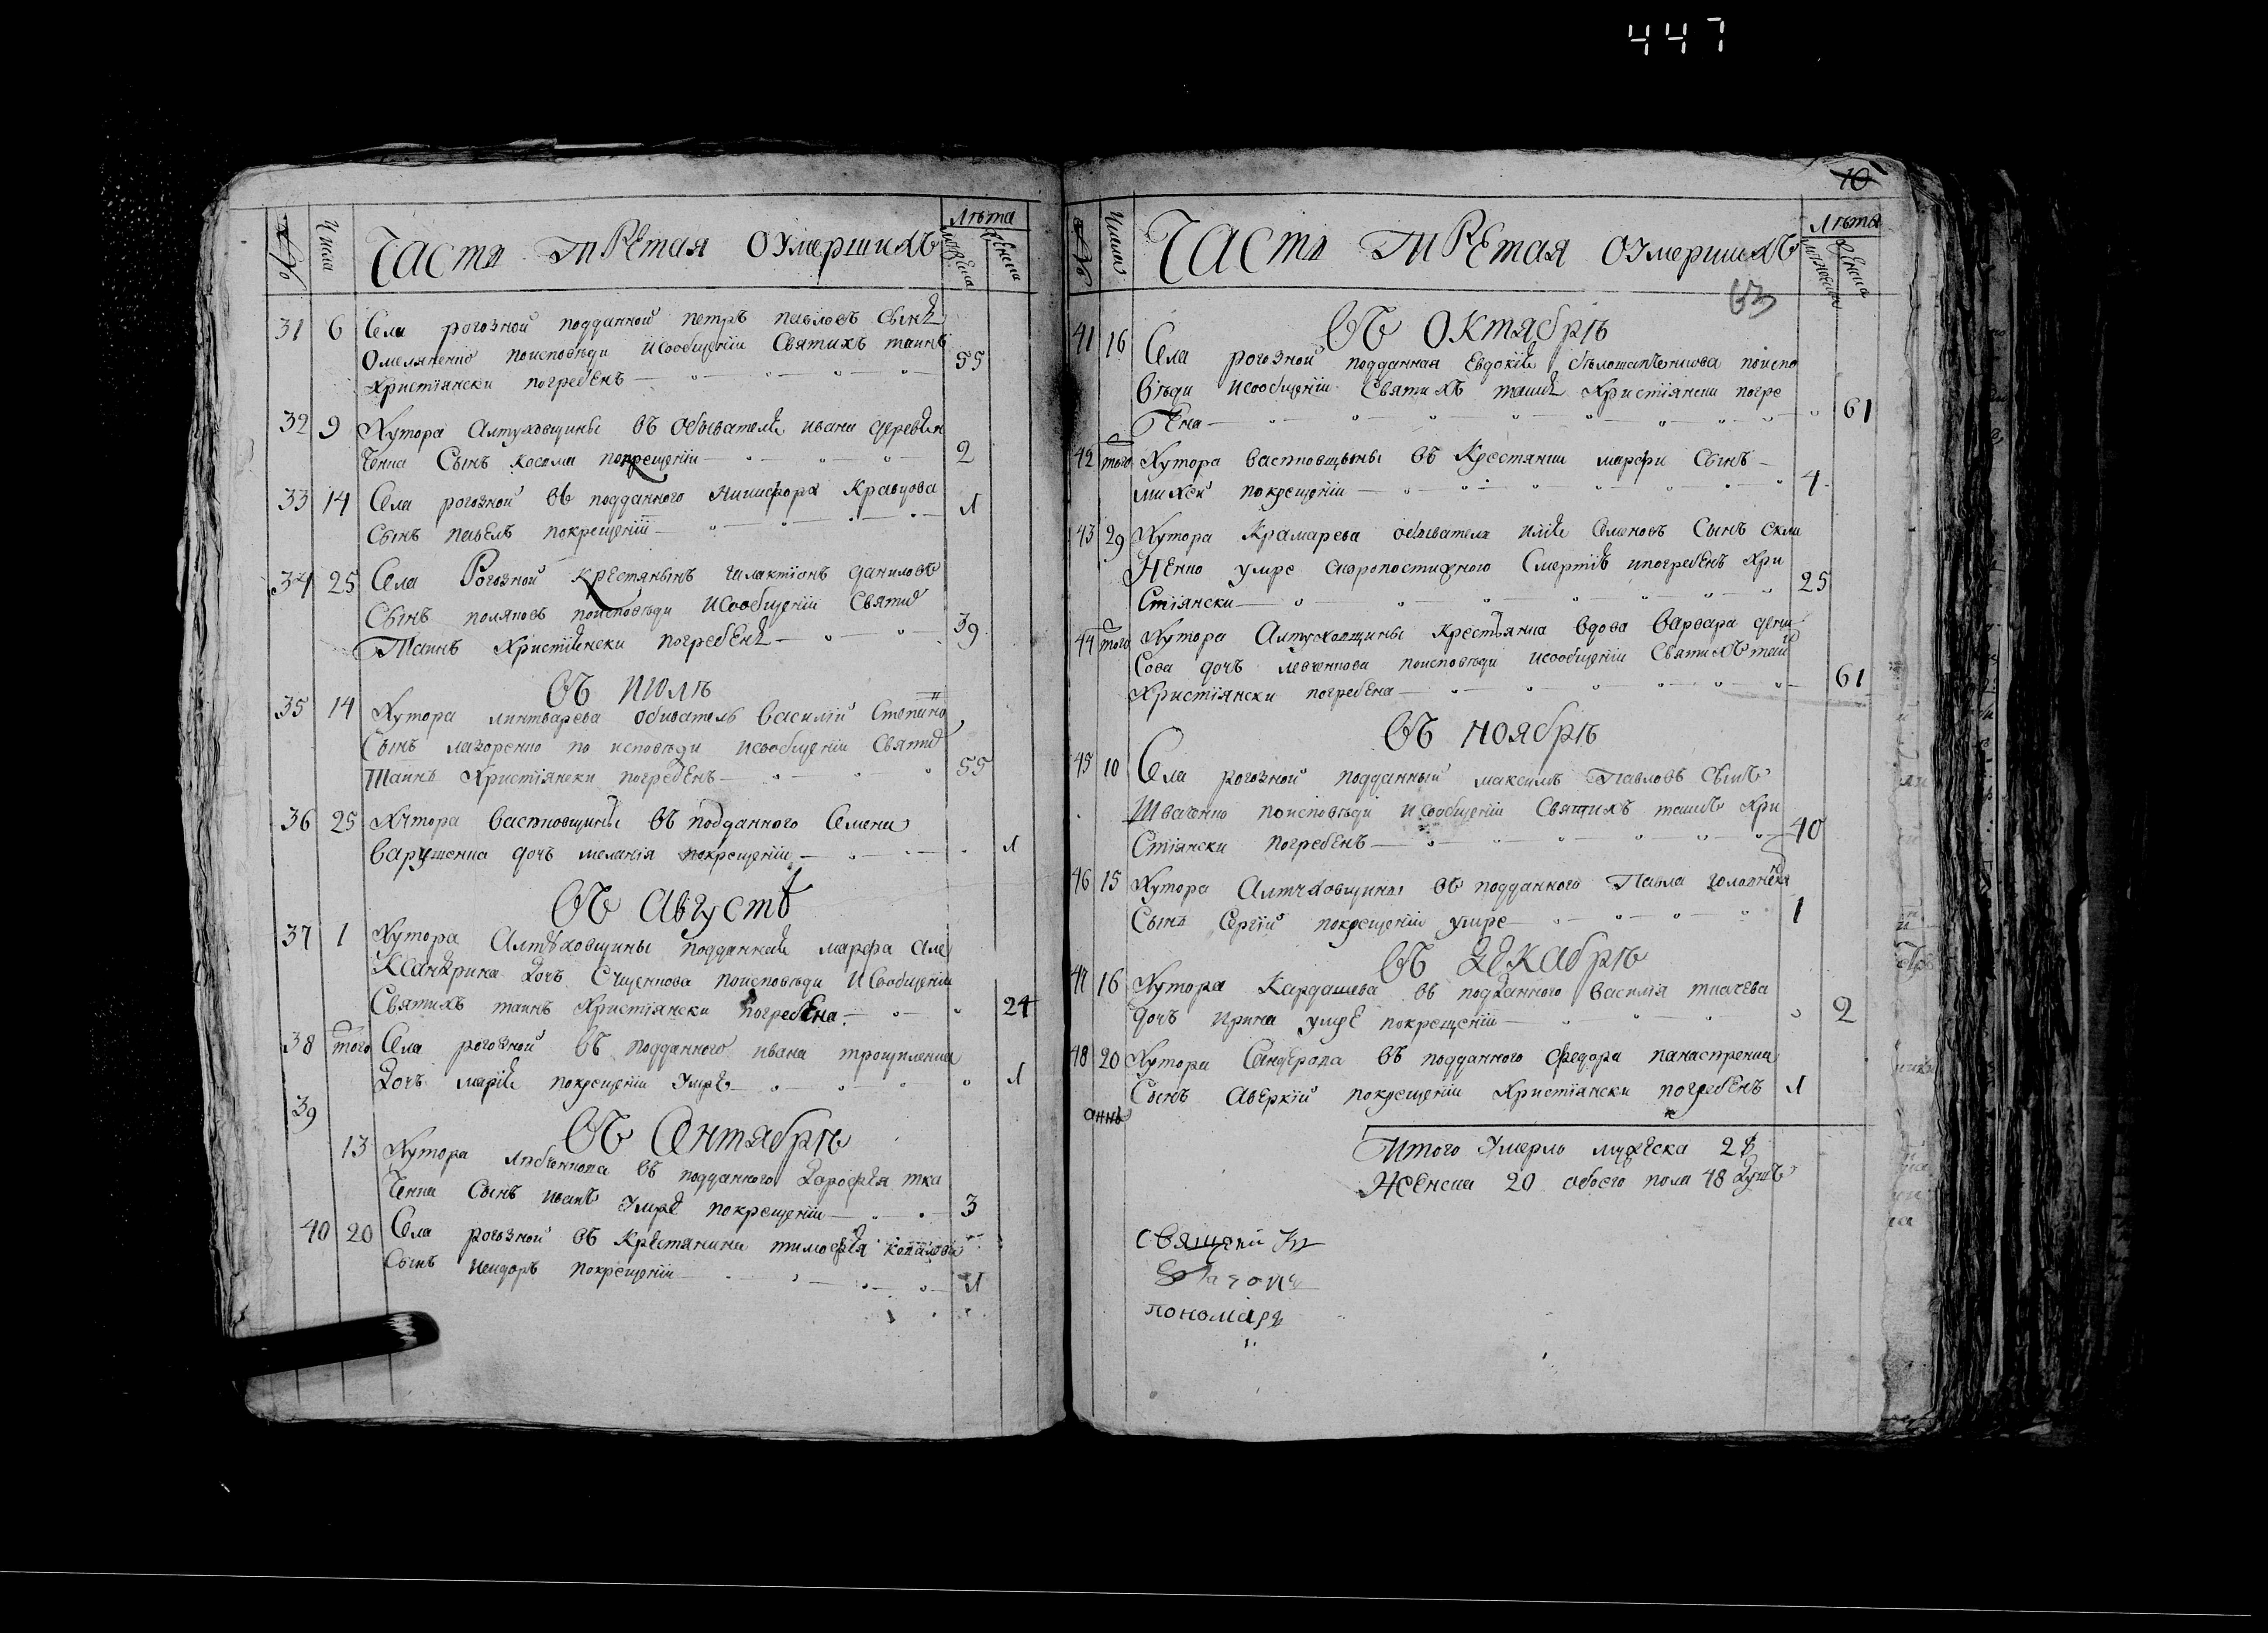 447
№ Числа Часть третая о умершихъ Лѣта
мужеска женска
31 6 Села рогозной подданной петръ павловъ сынъ
Омеляненко поисповѣди исообщенїи Святихъ таинъ
Христїянски погребенъ 55
32 9 Хутора Алтуховщины въ обывателя ивана деревян
ченка Сынъ косма покрещенїи 2
33 14 Села рогозной въ подданного никифора Кравцова
Сынъ павелъ покрещенїи 1
34 25 Села Рогозной крестянынъ галактїонъ даниловъ
Сынъ поляковъ поисповѣди исообщенїи Святих
Таинъ Христїянски погребенъ 39
въ июлѣ
35 14 Хутора линтварева обиватель василїй
Сынъ лазоренко по исповѣди исообщенїи Святих
Таинъ Христїянски погребенъ 55
36 25 Хутора васповщины въ подданного Семена
варушенка дочъ меланїя покрещенїи 1
въ августѣ
37 1 Хутора Алтуховщины подданная марфа але
ксандрина дочъ поисповѣди исообщенїи
Святихъ таинъ Христїянски погребена 24
38 того Села рогозной въ подданного ивана
дочъ марїя покрещенїи умре 1
39
въ Сентябрѣ
13 Хутора въ подданного дарофѣя тка
ченка Сынъ иванъ умре покрещенїи 3
40 20 Села рогозной въ крестянина тимофѣя
Сынъ покрещенїи 1
10
№ Числа Часть третая о умершихъ Лѣта
мужеска женска
63
въ Октябрѣ
41 16 Села рогозной подданная Евдокїя поиспо
вѣди исообщенїи Святихъ таинъ Христїянски погре
бена 61
42 того Хутора васповщины въ Крестянина марфи Сынъ
михей покрещенїи 4
43 29 Хутора Крамарева обывателя илїя Семеновъ Сынъ
женко умре скоропостижного Смертїю ипогребенъ Хри
стїянски 25
44 того Хутора Алтуховщины крестьянка вдова варвара дени
сова дочъ левченкова поисповѣди исообщенїи Святихъ таин
Христїянски погребена 61
въ ноябрѣ
45 10 Села рогозной подданный максимъ Павловъ сынъ
Поисповѣди исообщенїи Святихъ таинъ Хри
стїянски погребенъ 40
46 15 Хутора Алтуховщины въ подданного Павла
Сынъ Сергїй покрещенїи умре 1
въ декабрѣ
47 16 Хутора Кардашева въ подданного василїя ткачева
дочъ ирина умре покрещенїи 2
48 20 Хутора въ подданного федора панастренка
Сынъ Аверкїй покрещенїи Христїянски погребенъ 1
Итого умерло мужеска 28
женска 20 обоего пола 48 душъ
пономаръ